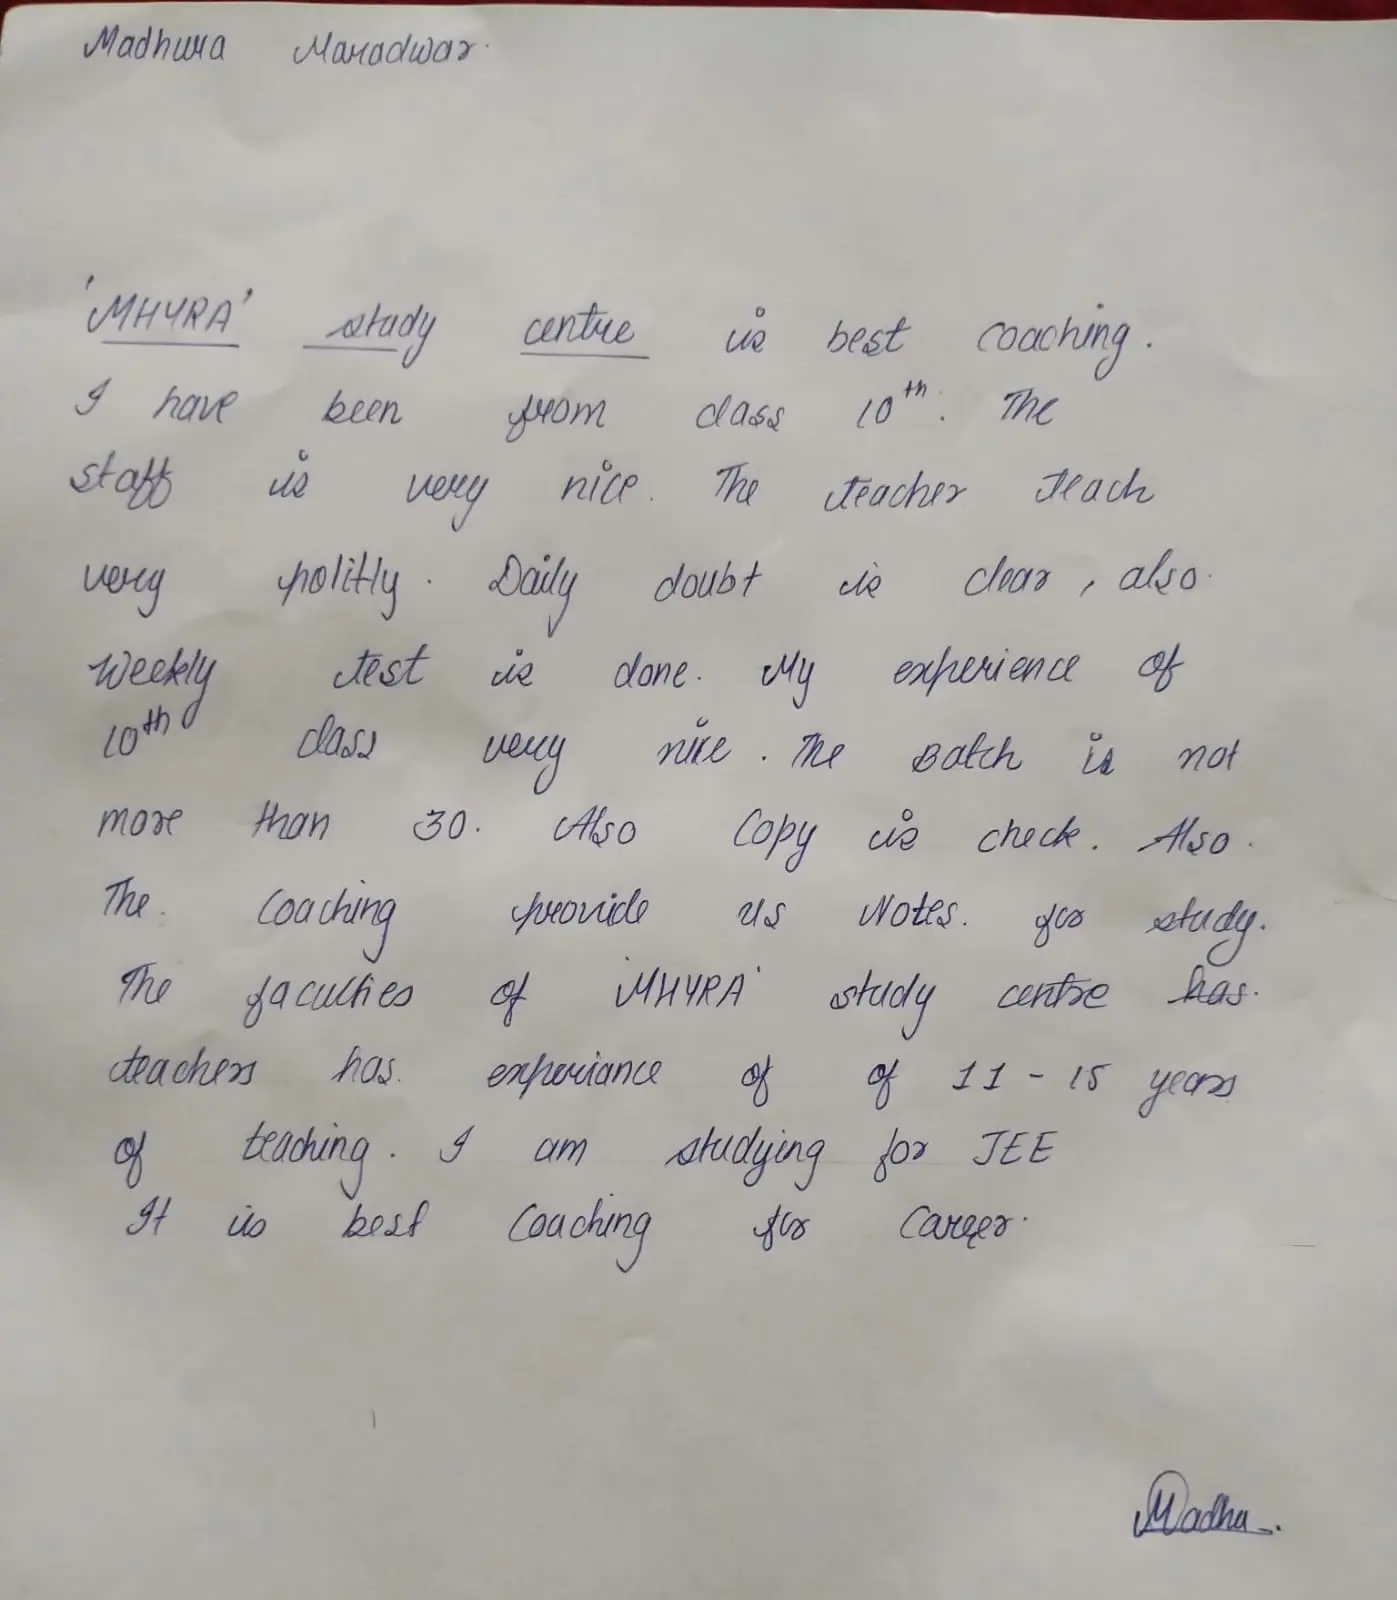 Madhura Maradwar.
'MHYRA' study centre is best coaching.
I have been from class 10th. The
staff is very nice. The teacher teach
very politly. Daily doubt is clear, also
Weekly test is done. My experience of
10th class very nice. The Batch is not
more than 30. Also Copy is check. Also.
The Coaching provide us Notes. for study.
The faculties of 'MHYRA' study centre has.
teachers has experiance of of 11 - 15 years
of teaching. I am studying for JEE
It is best Coaching for Career.
Madhu.